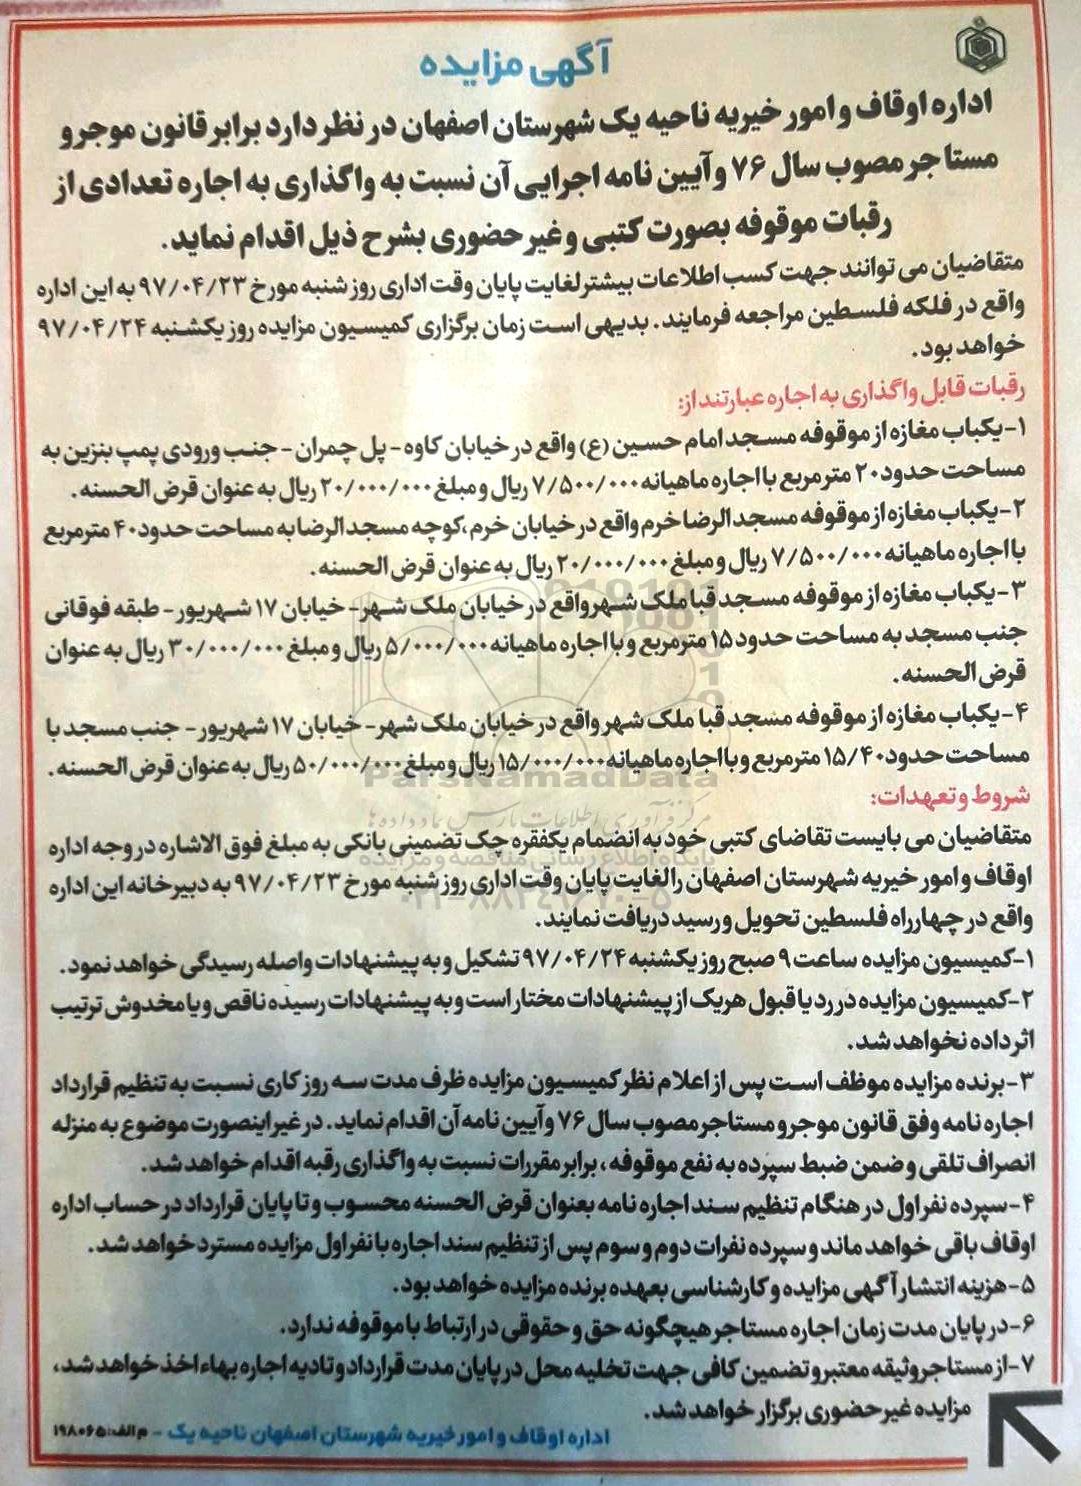 آگهی مزایده
اداره اوقاف و امور خیریه ناحیه یک شهرستان اصفهان در نظر دارد برابر قانون موجر و
مستاجر مصوب سال ۷۶ و آیین نامه اجرایی آن نسبت به واگذاری به اجاره تعدادی از
رقبات موقوفه بصورت کتبی و غیر حضوری بشرح ذیل اقدام نماید.
متقاضیان می توانند جهت کسب اطلاعات بیشتر لغایت پایان وقت اداری روز شنبه مورخ ۹۷/۰۴/۲۳ به این اداره
واقع در فلکه فلسطین مراجعه فرمایند. بدیهی است زمان برگزاری کمیسیون مزایده روز یکشنبه ۹۷/۰۴/۲۴
خواهد بود.
رقبات قابل واگذاری به اجاره عبارتند از:
۱-یکباب مغازه از موقوفه مسجد امام حسین (ع) واقع در خیابان کاوه- پل چمران- جنب ورودی پمپ بنزین به
مساحت حدود ۲۰ مترمربع با اجاره ماهیانه ۷/۵۰۰/۰۰۰ ریال و مبلغ ۲۰/۰۰۰/۰۰۰ ریال به عنوان قرض الحسنه.
۲-یکباب مغازه از موقوفه مسجد الرضا خرم واقع در خیابان خرم،کوچه مسجد الرضا به مساحت حدود ۴۰ مترمربع
با اجاره ماهیانه ۷/۵۰۰/۰۰۰ ریال و مبلغ ۲۰/۰۰۰/۰۰۰ ریال به عنوان قرض الحسنه.
۳-یکباب مغازه از موقوفه مسجد قبا ملک شهر واقع در خیابان ملک شهر- خیابان ۱۷ شهریور- طبقه فوقانی
جنب مسجد به مساحت حدود ۱۵ مترمربع و با اجاره ماهیانه ۵/۰۰۰/۰۰۰ ریال و مبلغ ۳۰/۰۰۰/۰۰۰ ریال به عنوان
قرض الحسنه.
۴-یکباب مغازه از موقوفه مسجد قبا ملک شهر واقع در خیابان ملک شهر- خیابان ۱۷ شهریور- جنب مسجد با
مساحت حدود ۱۵/۴۰ مترمربع و با اجاره ماهیانه ۱۵/۰۰۰/۰۰۰ ریال و مبلغ ۵۰/۰۰۰/۰۰۰ ریال به عنوان قرض الحسنه.
ParsNamadData
شروط و تعهدات:
مرکز فرآوری اطلاعات پارس نماد داده ها
متقاضیان می بایست تقاضای کتبی خود به انضمام یکفقره چک تضمینی بانکی به مبلغ فوق الاشاره در وجه اداره
پایگاه اطلاع رسانی مناقصه و مزایده
اوقاف و امور خیریه شهرستان اصفهان را لغایت پایان وقت اداری روز شنبه مورخ ۹۷/۰۴/۲۳ به دبیرخانه این اداره
۰۲۱-۸۸۳۴۹۶۷۰-۵
واقع در چهارراه فلسطین تحویل و رسید دریافت نمایند.
۱-کمیسیون مزایده ساعت ۹ صبح روز یکشنبه ۹۷/۰۴/۲۴ تشکیل و به پیشنهادات واصله رسیدگی خواهد نمود.
۲-کمیسیون مزایده در رد یا قبول هر یک از پیشنهادات مختار است و به پیشنهادات رسیده ناقص و یا مخدوش ترتیب
اثر داده نخواهد شد.
۳-برنده مزایده موظف است پس از اعلام نظر کمیسیون مزایده ظرف مدت سه روز کاری نسبت به تنظیم قرارداد
اجاره نامه وفق قانون موجر و مستاجر مصوب سال ۷۶ و آیین نامه آن اقدام نماید. در غیر اینصورت موضوع به منزله
انصراف تلقی و ضمن ضبط سپرده به نفع موقوفه، برابر مقررات نسبت به واگذاری رقبه اقدام خواهد شد.
۴-سپرده نفر اول در هنگام تنظیم سند اجاره نامه بعنوان قرض الحسنه محسوب و تا پایان قرارداد در حساب اداره
اوقاف باقی خواهد ماند و سپرده نفرات دوم و سوم پس از تنظیم سند اجاره با نفر اول مزایده مسترد خواهد شد.
۵-هزینه انتشار آگهی مزایده و کارشناسی بعهده برنده مزایده خواهد بود.
۶-در پایان مدت زمان اجاره مستاجر هیچگونه حق و حقوقی در ارتباط با موقوفه ندارد.
۷-از مستاجر وثیقه معتبر و تضمین کافی جهت تخلیه محل در پایان مدت قرارداد و تادیه اجاره بهاء اخذ خواهد شد،
مزایده غیر حضوری برگزار خواهد شد.
اداره اوقاف و امور خیریه شهرستان اصفهان ناحیه یک - م الف: ۱۹۸۰۶۵